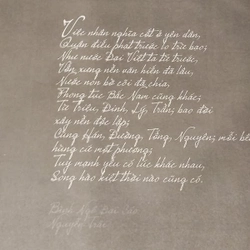 Việc nhân nghĩa cốt ở yên dân,
Quân điếu phạt trước lo trừ bạo;
Như nước Đại Việt ta từ trước,
Vốn xưng nền văn hiến đã lâu,
Nước non bờ cõi đã chia,
Phong tục Bắc Nam cũng khác;
Từ Triệu, Đinh, Lý, Trần; bao đời
xây nền độc lập;
Cùng Hán, Đường, Tống, Nguyên; mỗi bên
hùng cứ một phương;
Tuy mạnh yếu có lúc khác nhau,
Song hào kiệt thời nào cũng có.
Bình Ngô Đại Cáo
Nguyễn Trãi